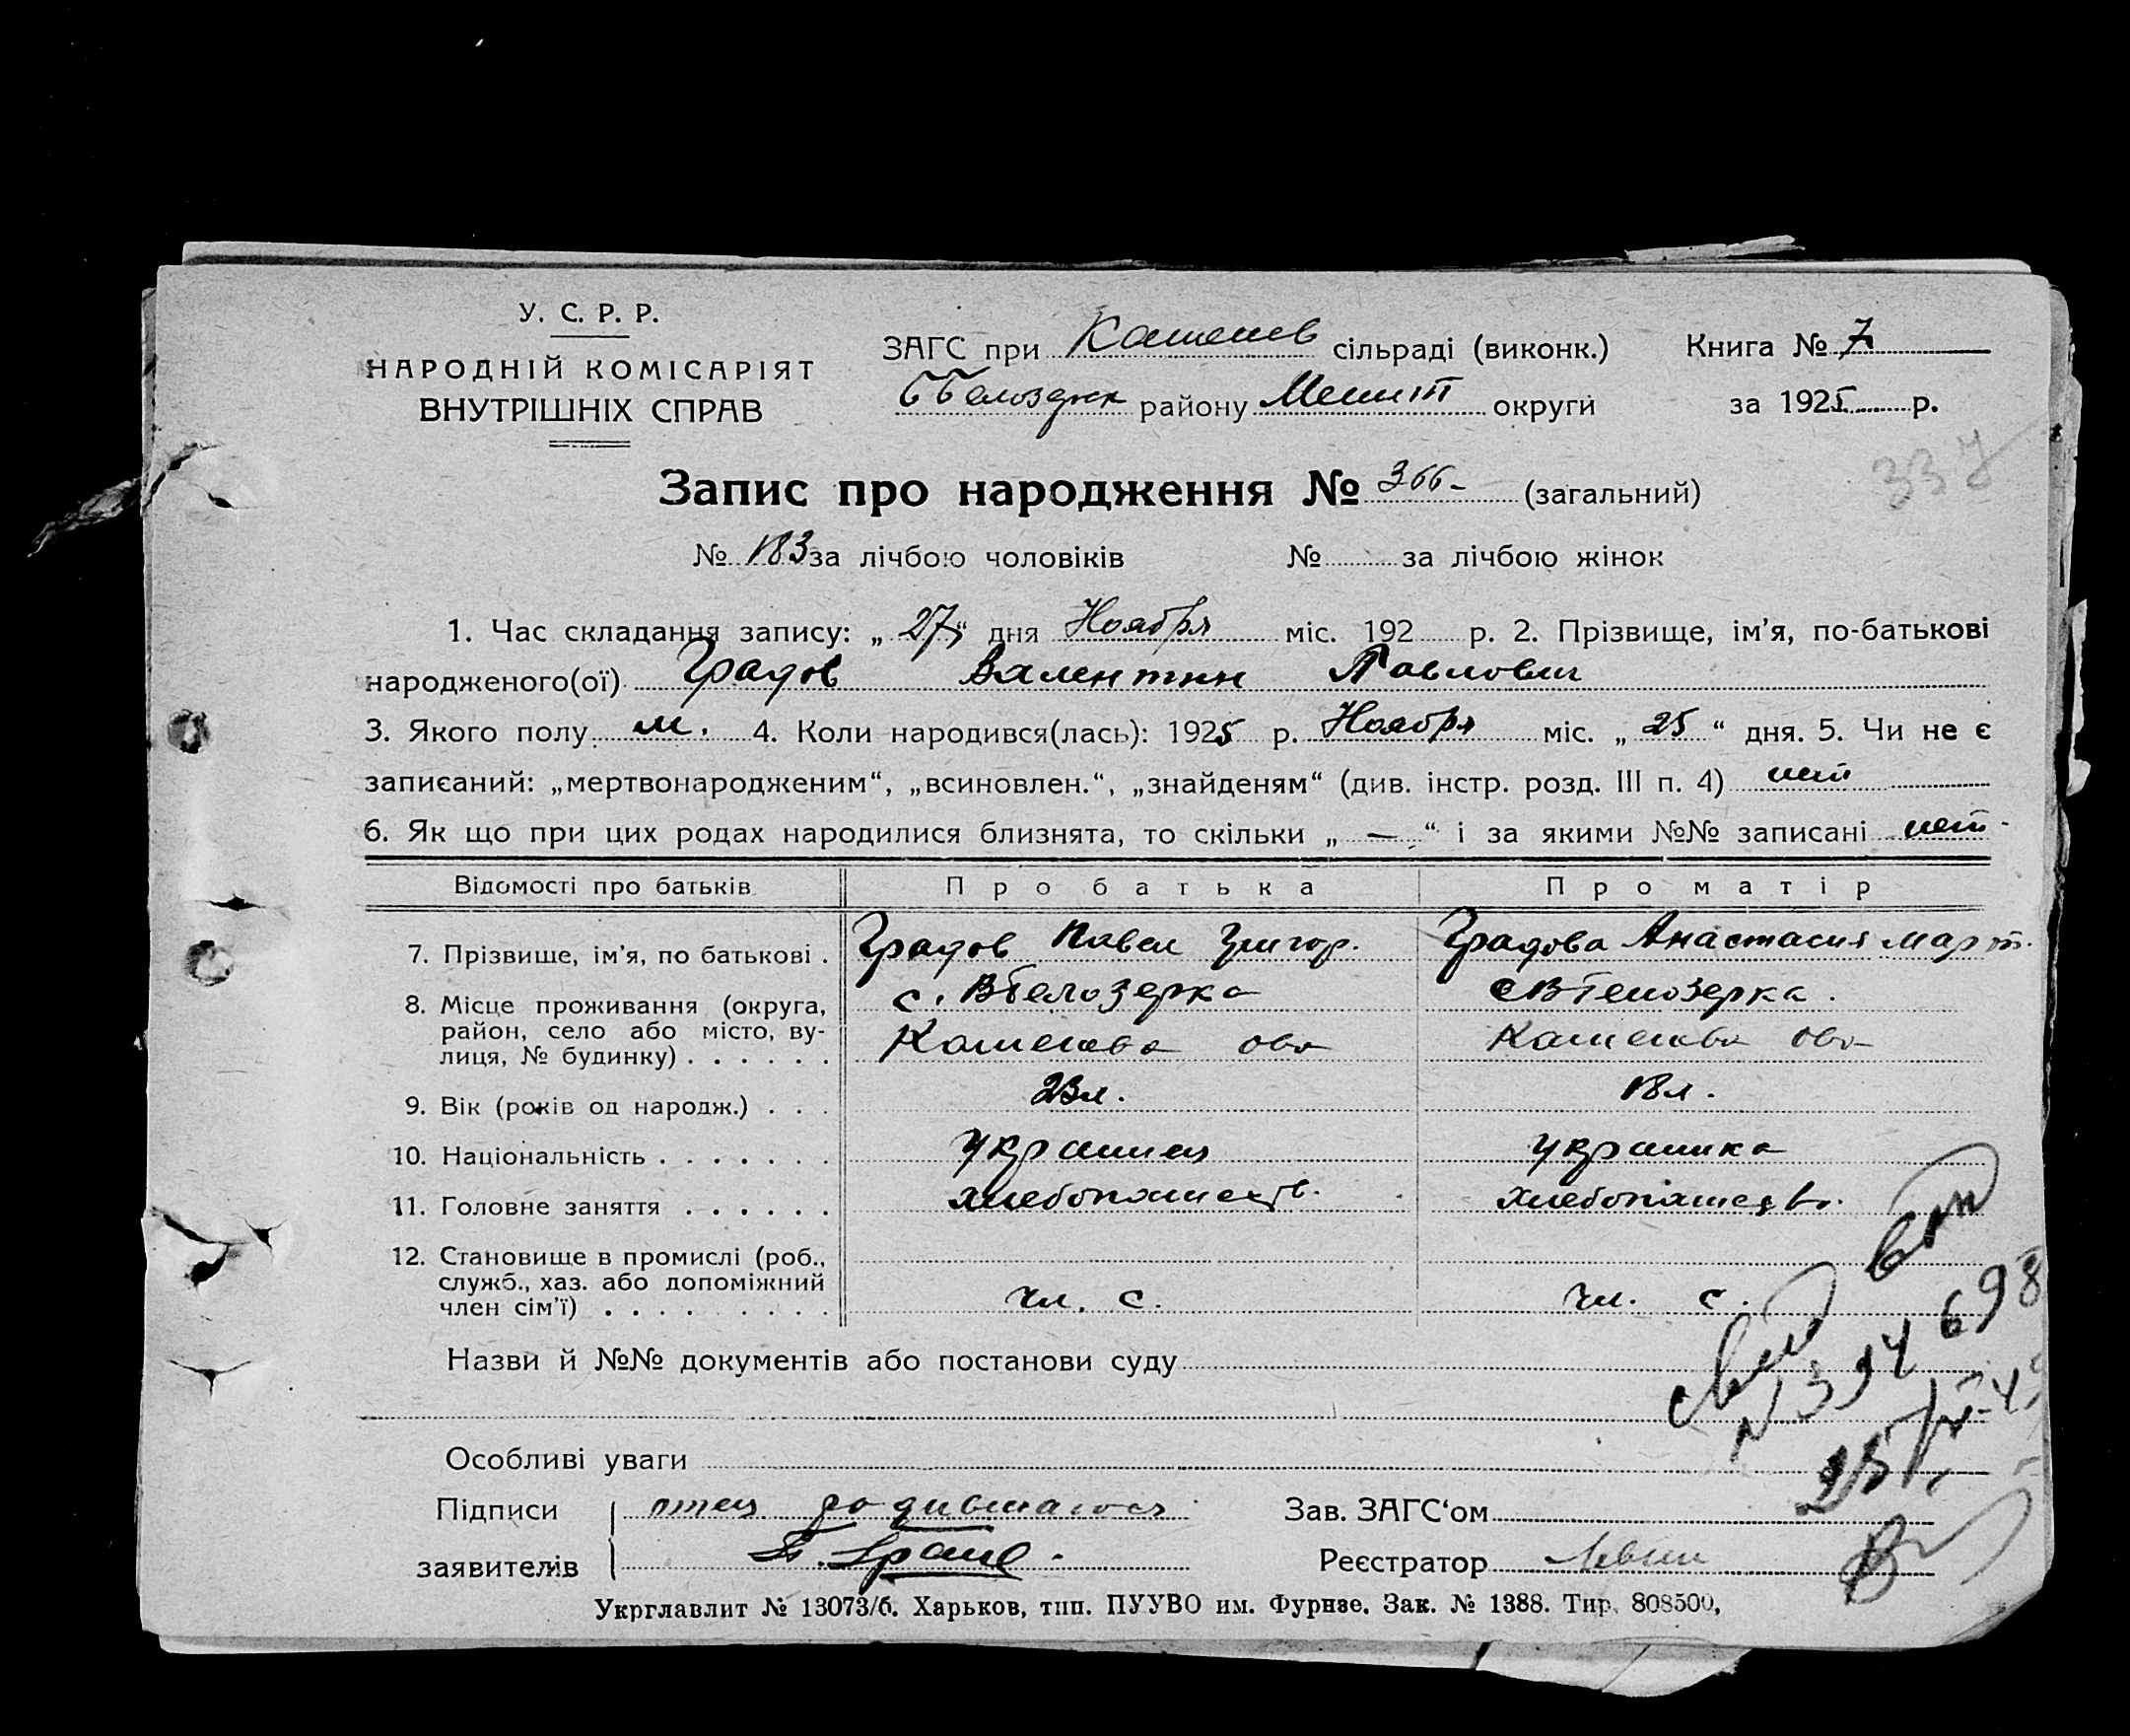 У. С. Р. Р.
НАРОДНІЙ КОМІСАРІЯТ
ВНУТРІШНІХ СПРАВ
ЗАГС при сільраді (виконк.)
району Мелит округи
Книга № 7
за 1925 р.
337
Запис про народження № 366- (загальний)
№ 183 за лічбою чоловіків № за лічбою жінок
1. Час складання запису: „27“ дня Ноября міс. 192 р. 2. Прізвище, ім’я, по-батькові
народженого(ої) Градов Валентин Павлович
3. Якого полу м. 4. Коли народився(лась): 1925 р. Ноября міс. „25“ дня. 5. Чи не є
записаний: „мертвонародженим“, „всиновлен.“, „знайденям“ (див. інстр. розд. III п. 4) нет
6. Як що при цих родах народилися близнята, то скільки „—“ і за якими №№ записані нет-
Відомості про батьків Про батька Про матір
7. Прізвище, ім’я, по батькові . Градов Павел Григор. Градова Анастасия Март.
8. Місце проживання (округа, с. ВБелозерка с ВБелозерка.
район, село або місто, ву-
лиця, № будинку) . . . . . .
9. Вік (років од народж.) . . . 23л. 18л.
10. Національність . . . . . . . украинец украинка
11. Головне заняття . . . . . . хлебопашеств. хлебопашеств.
12. Становище в промислі (роб.,
служб., хаз. або допоміжний
член сім’ї) . . . . . . . . . чл. с. чл. с.
Назви й №№ документів або постанови суду
N 394698
Особливі уваги
Підписи отец родившагося Зав. ЗАГС‘ом
заявителів Реєстратор
Укрглавлит № 13073/б. Харьков, тип. ПУУВО им. Фрунзе. Зак. № 1388. Тир. 808500,